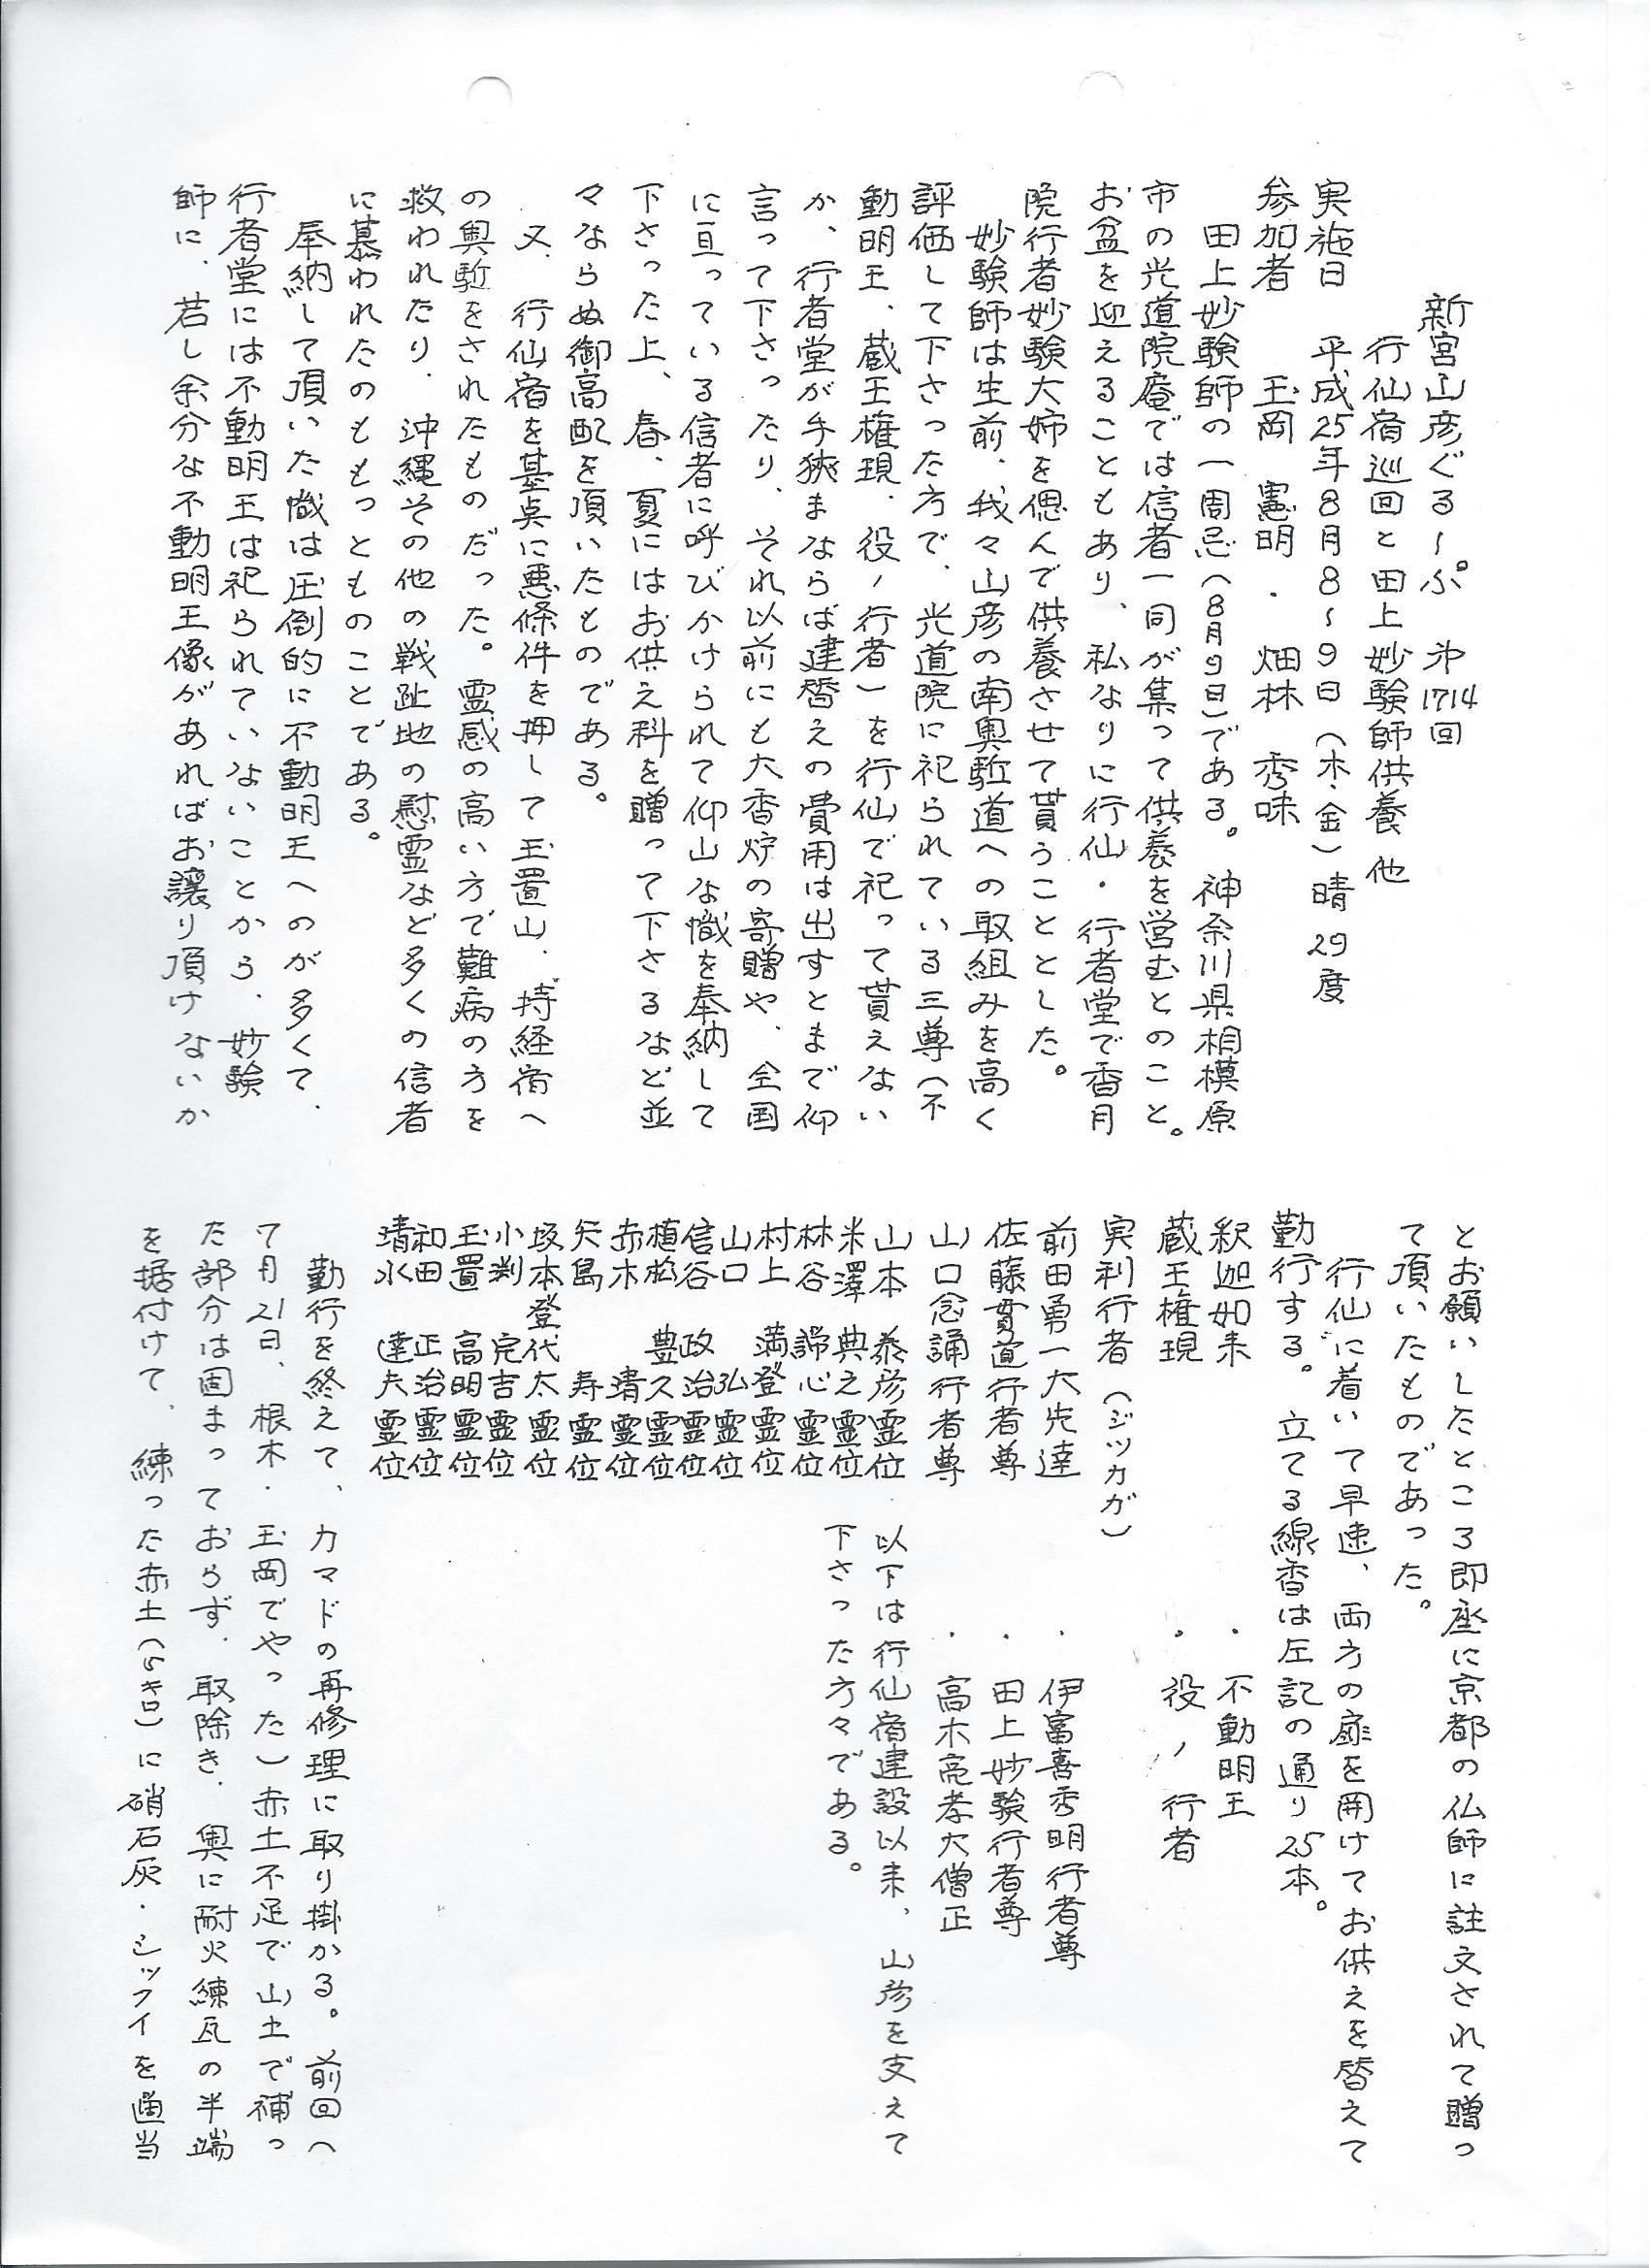 新宮山彦ぐる～ぷ。 第1714回
行仙宿巡回と田上妙験師供養 他
実施日 平成25年8月8～9日（木・金）晴 29度
参加者 玉岡 憲明 ・ 畑林 秀味
田上妙験師の一周忌（8月9日）である。神奈川県相模原
市の光道院庵では信者一同が集って供養を営むとのこと。
お盆を迎えることもあり、私なりに行仙・行者堂で香月
院行者妙験大姉を偲んで供養させて貰うこととした。
妙験師は生前、我々山彦の南奥駈道への取組みを高く
評価して下さった方で、光道院に祀られている三尊（不
動明王、蔵王権現、役ノ行者）を行仙で祀って貰えない
か、行者堂が手狭まならば建替えの費用は出すとまで仰
言って下さったり、それ以前にも大香炉の寄贈や、全国
に亘っている信者に呼びかけられて仰山な幟を奉納して
下さった上、春、夏にはお供え料を贈って下さるなど並
々ならぬ御高配を頂いたものである。
又、行仙宿を基点に悪條件を押して玉置山、持経宿へ
の奥駈をされたものだった。霊感の高い方で難病の方を
救われたり、沖縄その他の戦跡地の慰霊など多くの信者
に慕われたのももっとものことである。
奉納して頂いた幟は圧倒的に不動明王へのが多くて、
行者堂には不動明王は祀られていないことから、妙験
師に、若し余分な不動明王像があればお譲り頂けないか
とお願いしたところ即座に京都の仏師に註文されて贈っ
て頂いたものであった。
行仙に着いて早速、両方の扉を開けてお供えを替えて
勤行する。立てる線香は左記の通り25本。
釈迦如来 ・ 不動明王
蔵王権現 ・ 役ノ行者
実利行者（ジツカガ）
前田勇一大先達 ・ 伊富喜秀明行者尊
佐藤貫道行者尊 ・ 田上妙験行者尊
山口念誦行者尊 ・ 高木亮孝大僧正
山本 泰彦霊位 以下は行仙宿建設以来、山彦を支えて
米澤 典之霊位 下さった方々である。
林谷 諦心霊位
村上 満登霊位
山口 弘霊位
信谷 政治霊位
植松 豊久霊位
赤木 清霊位
矢島 寿霊位
坂本登代太霊位
小渕 完吉霊位
玉置 高明霊位
和田 正治霊位
清水 達夫霊位
勤行を終えて、カマドの再修理に取り掛かる。前回へ
て月21日、根木・玉岡でやった）赤土不足で山土で補っ
た部分は固まっておらず、取除き、奥に耐火練瓦の半端
を据付けて、練った赤土（5キロ）に硝石灰・シックイを適当